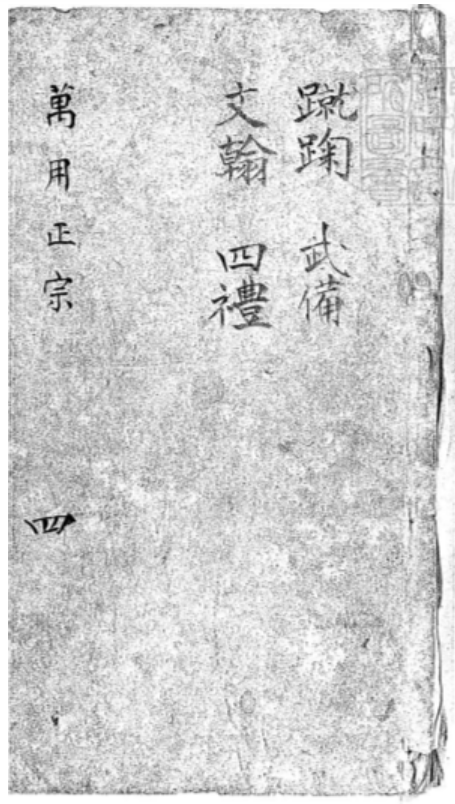 蹴踘 武備
文翰 四禮
萬用正宗
四